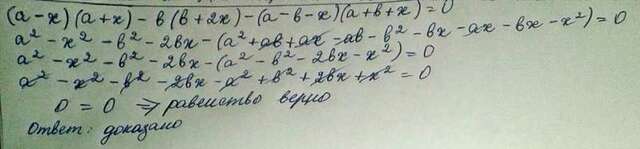 (a-x)(a+x) - в(в+2x) - (a-в-x)(a+в+x) = 0
a² - x² - в² - 2вx - (a² + aв + ax - aв - в² - вx - ax - вx - x²) = 0
a² - x² - в² - 2вx - (a² - в² - 2вx - x²) = 0
a² - x² - в² - 2вx - a² + в² + 2вx + x² = 0
0 = 0 ⇒ равенство верно
Ответ: доказано